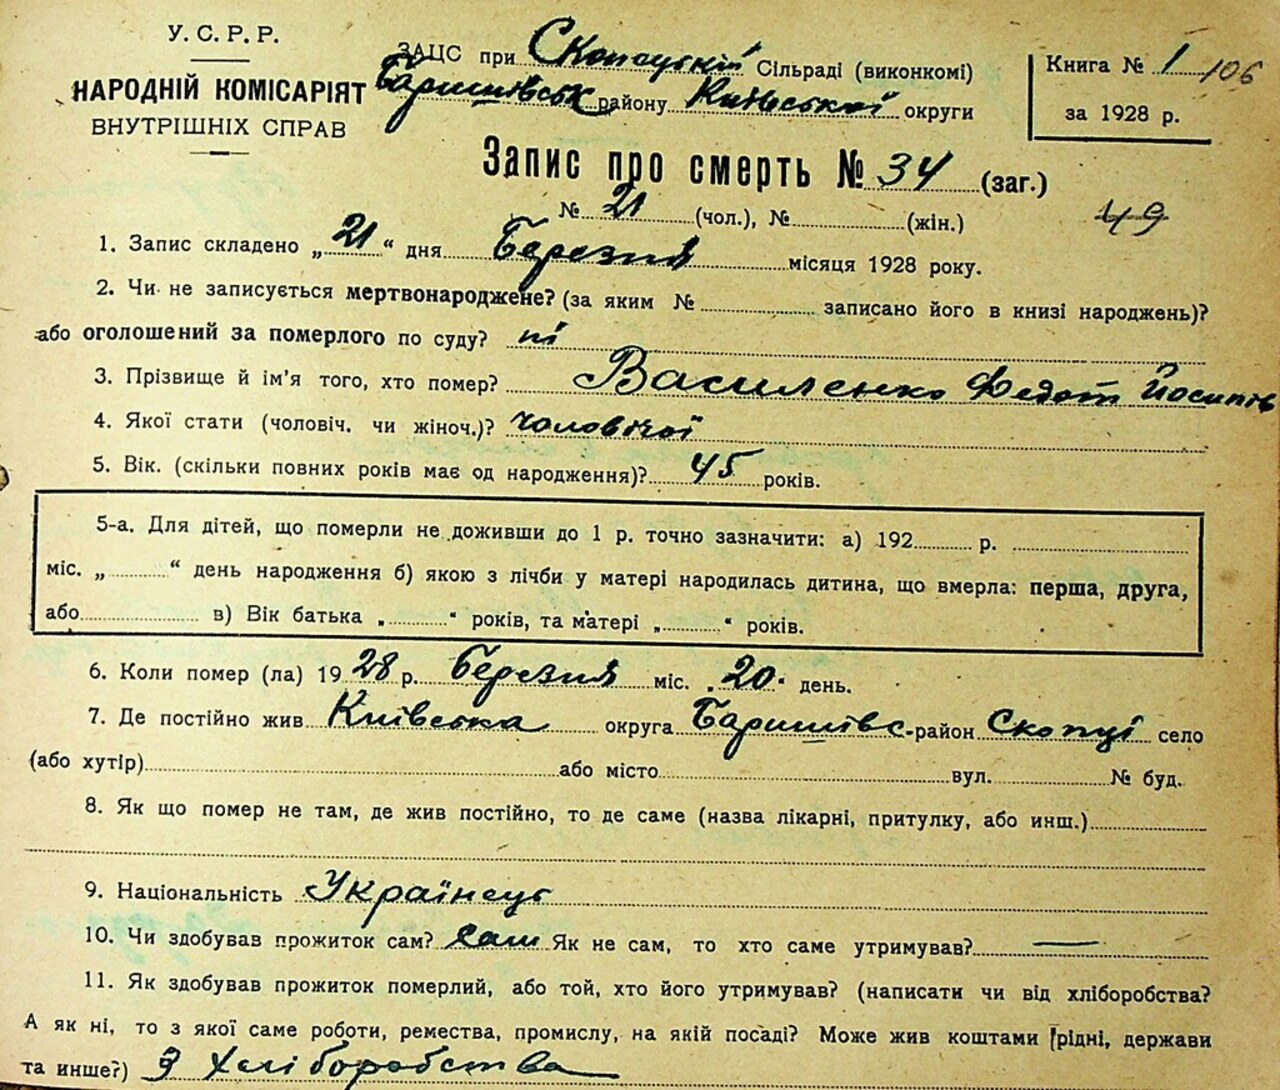 У. С. Р. Р.
НАРОДНІЙ КОМІСАРІЯТ
ВНУТРІШНІХ СПРАВ
ЗАЦС при Скопецькій Сільраді (виконкомі)
Баришівськ району Київської округи
Книга № 1 106
за 1928 р.
Запис про смерть № 34 (заг.)
№ 21 (чол.), № (жін.)
49
1. Запис складено „21“ дня Березня місяця 1928 року.
2. Чи не записується мертвонароджене? (за яким № записано його в книзі народжень)?
або оголошений за померлого по суду? ні
3. Прізвище й ім'я того, хто помер? Василенко Федот Йосипів
4. Якої стати (чоловіч. чи жіноч.)? чоловічої
5. Вік. (скільки повних років має од народження)? 45 років.
5-а. Для дітей, що померли не доживши до 1 р. точно зазначити: а) 192 р.
міс. „ “ день народження б) якою з лічби у матері народилась дитина, що вмерла: перша, друга,
або в) Вік батька „ “ років, та матері „ “ років.
6. Коли помер (ла) 1928 р. березня міс. „20“ день.
7. Де постійно жив Київська округа Баришівс-район Скопці село
(або хутір) або місто вул. № буд.
8. Як що помер не там, де жив постійно, то де саме (назва лікарні, притулку, або инш.)
9. Національність Українець
10. Чи здобував прожиток сам? сам Як не сам, то хто саме утримував? —
11. Як здобував прожиток померлий, або той, хто його утримував? (написати чи від хліборобства?
А як ні, то з якої саме роботи, ремества, промислу, на якій посаді? Може жив коштами (рідні, держави
та инше?) З Хліборобства